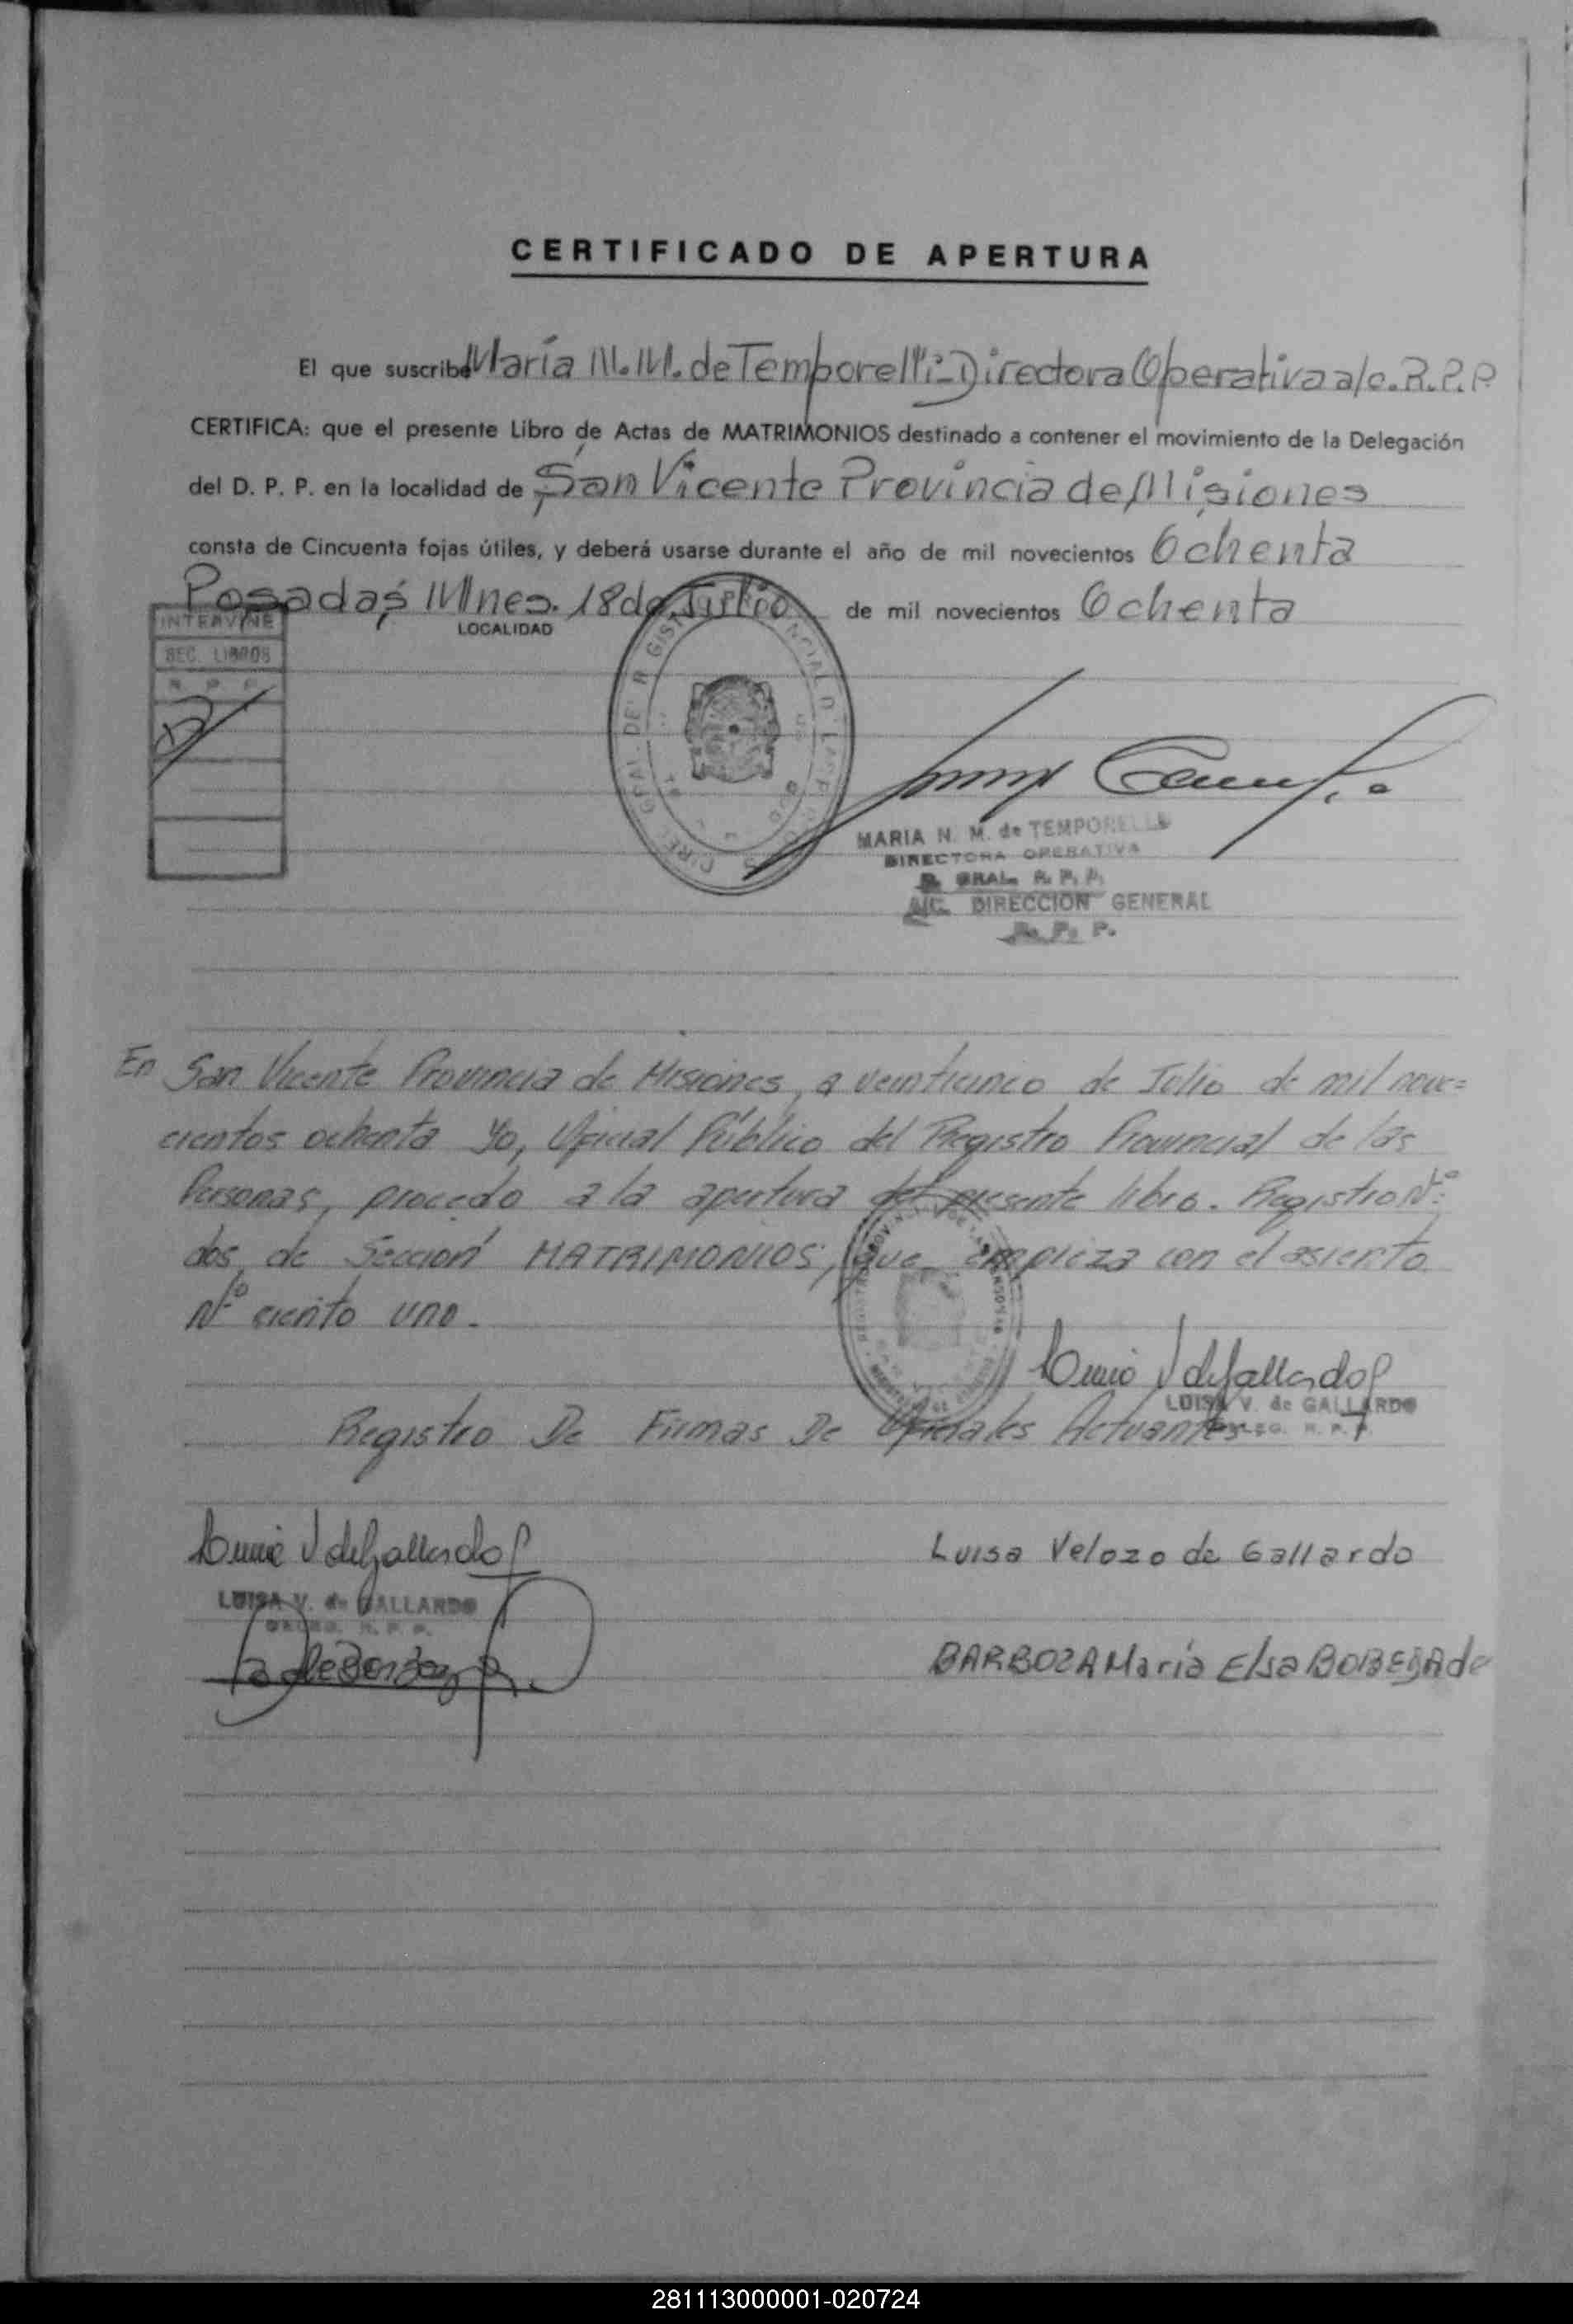 CERTIFICADO DE APERTURA
El que suscribe María N. M. de Temporelli - Directora Operativa a/c. R.P.P
CERTIFICA: que el presente Libro de Actas de MATRIMONIOS destinado a contener el movimiento de la Delegación
del D. P. P. en la localidad de San Vicente Provincia de Misiones
consta de Cincuenta fojas útiles, y deberá usarse durante el año de mil novecientos Ochenta
Posadas, Mnes. 18 de Julio de mil novecientos Ochenta
LOCALIDAD
INTERVINE
SEC. LIBROS
R. P. P.
MARIA N. M. de TEMPORELLI
DIRECTORA OPERATIVA
D. GRAL. R. P. P.
A/C. DIRECCION GENERAL
R. P. P.
En San Vicente Provincia de Misiones, a veinticinco de Julio de mil nove=
cientos ochenta Yo, Oficial Público del Registro Provincial de las
Personas, procedo a la apertura del presente libro. Registro Nº
dos de Sección MATRIMONIOS, que empieza con el asiento
Nº ciento uno.
LUISA V. de GALLARDO
Registro De Firmas De Oficiales Actuantes
Luisa Velozo de Gallardo
LUISA V. de GALLARDO
R. P. P.
BARBOZA María Elsa BOBEDA de
281113000001-020724